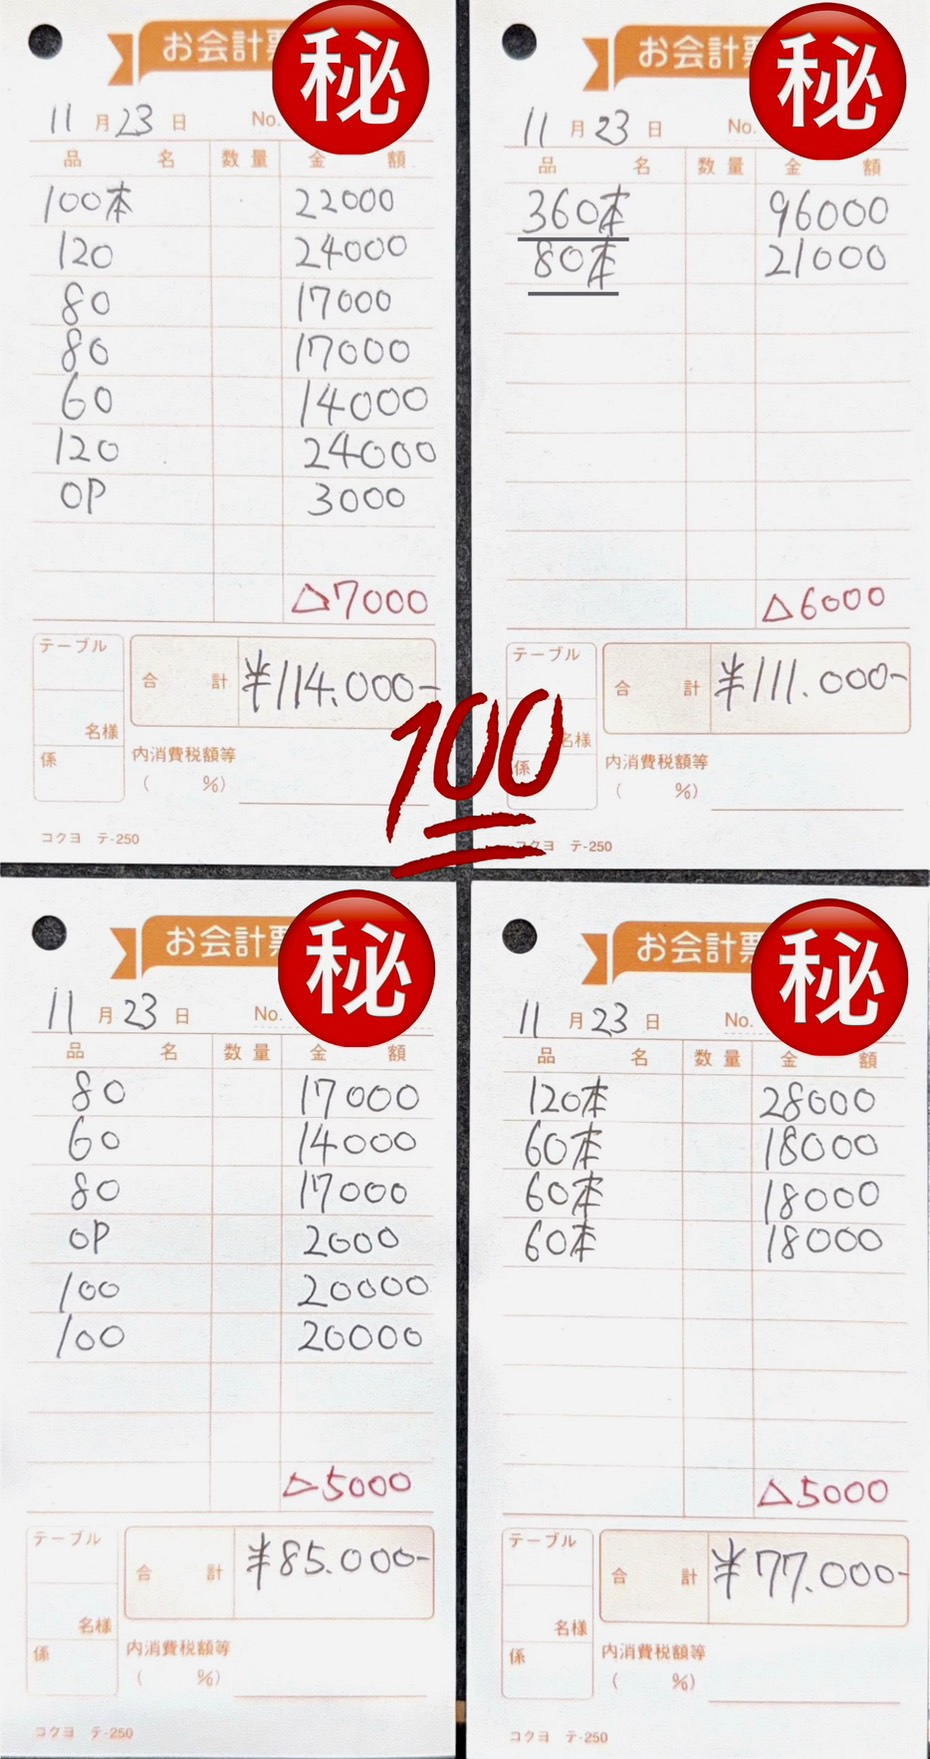 お会計票
㊙
11月23日 No.
品名 数量 金額
100本 22000
120 24000
80 17000
80 17000
60 14000
120 24000
OP 3000
△7000
テーブル
名様
係
合計 ¥114.000-
内消費税額等
( %)
コクヨ テ-250
お会計票
㊙
11月23日 No.
品名 数量 金額
360本 96000
80本 21000
△6000
テーブル
名様
係
合計 ¥111.000-
内消費税額等
( %)
コクヨ テ-250
100
お会計票
㊙
11月23日 No.
品名 数量 金額
80 17000
60 14000
80 17000
OP 2000
100 20000
100 20000
△5000
テーブル
名様
係
合計 ¥85.000-
内消費税額等
( %)
コクヨ テ-250
お会計票
㊙
11月23日 No.
品名 数量 金額
120本 28000
60本 18000
60本 18000
60本 18000
△5000
テーブル
名様
係
合計 ¥77.000-
内消費税額等
( %)
コクヨ テ-250